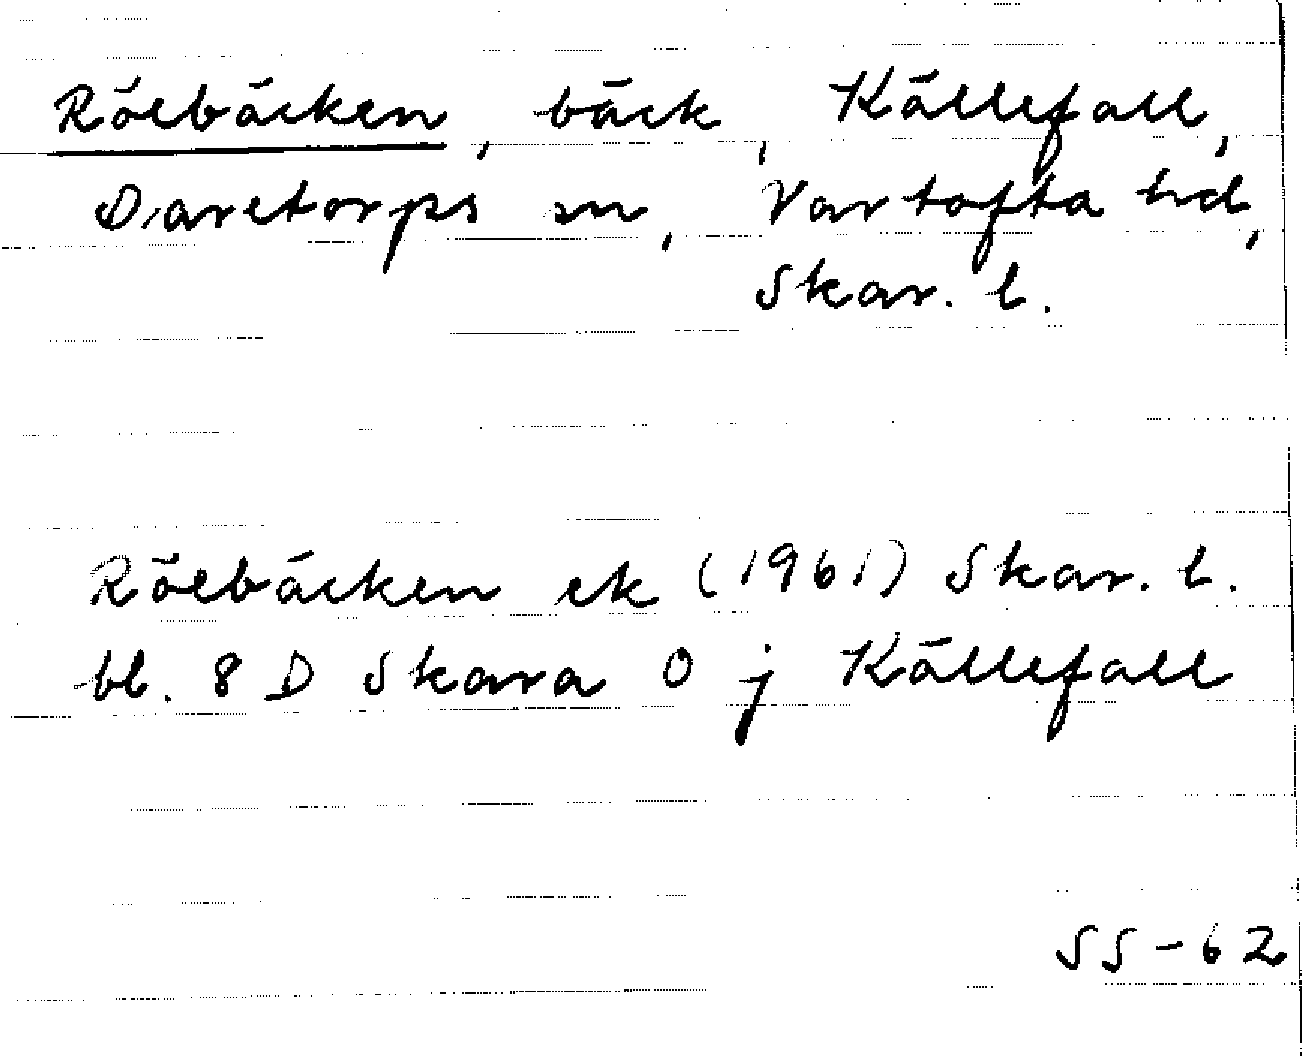 Röebäcken, bäck, Källefall,
Daretorps sn, Vartofta hd,
Skar. l.
Röebäcken ek (1961) Skar. l.
bl. 8 D Skara 0 j Källefall
SS-62